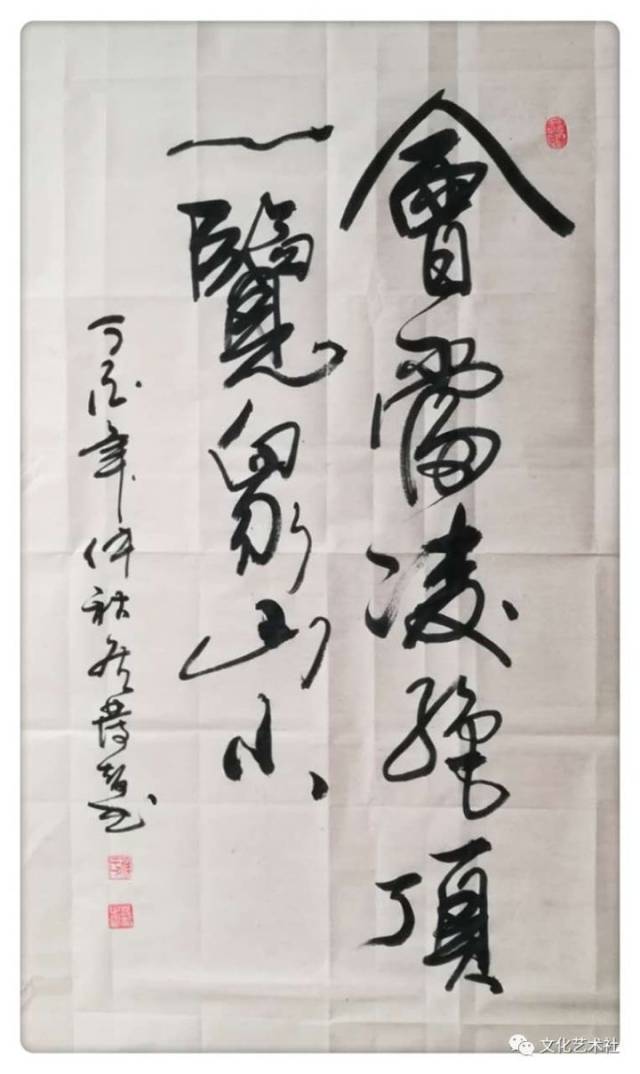 會當凌絕頂
一覽眾山小
年仲秋
书
文化艺术社